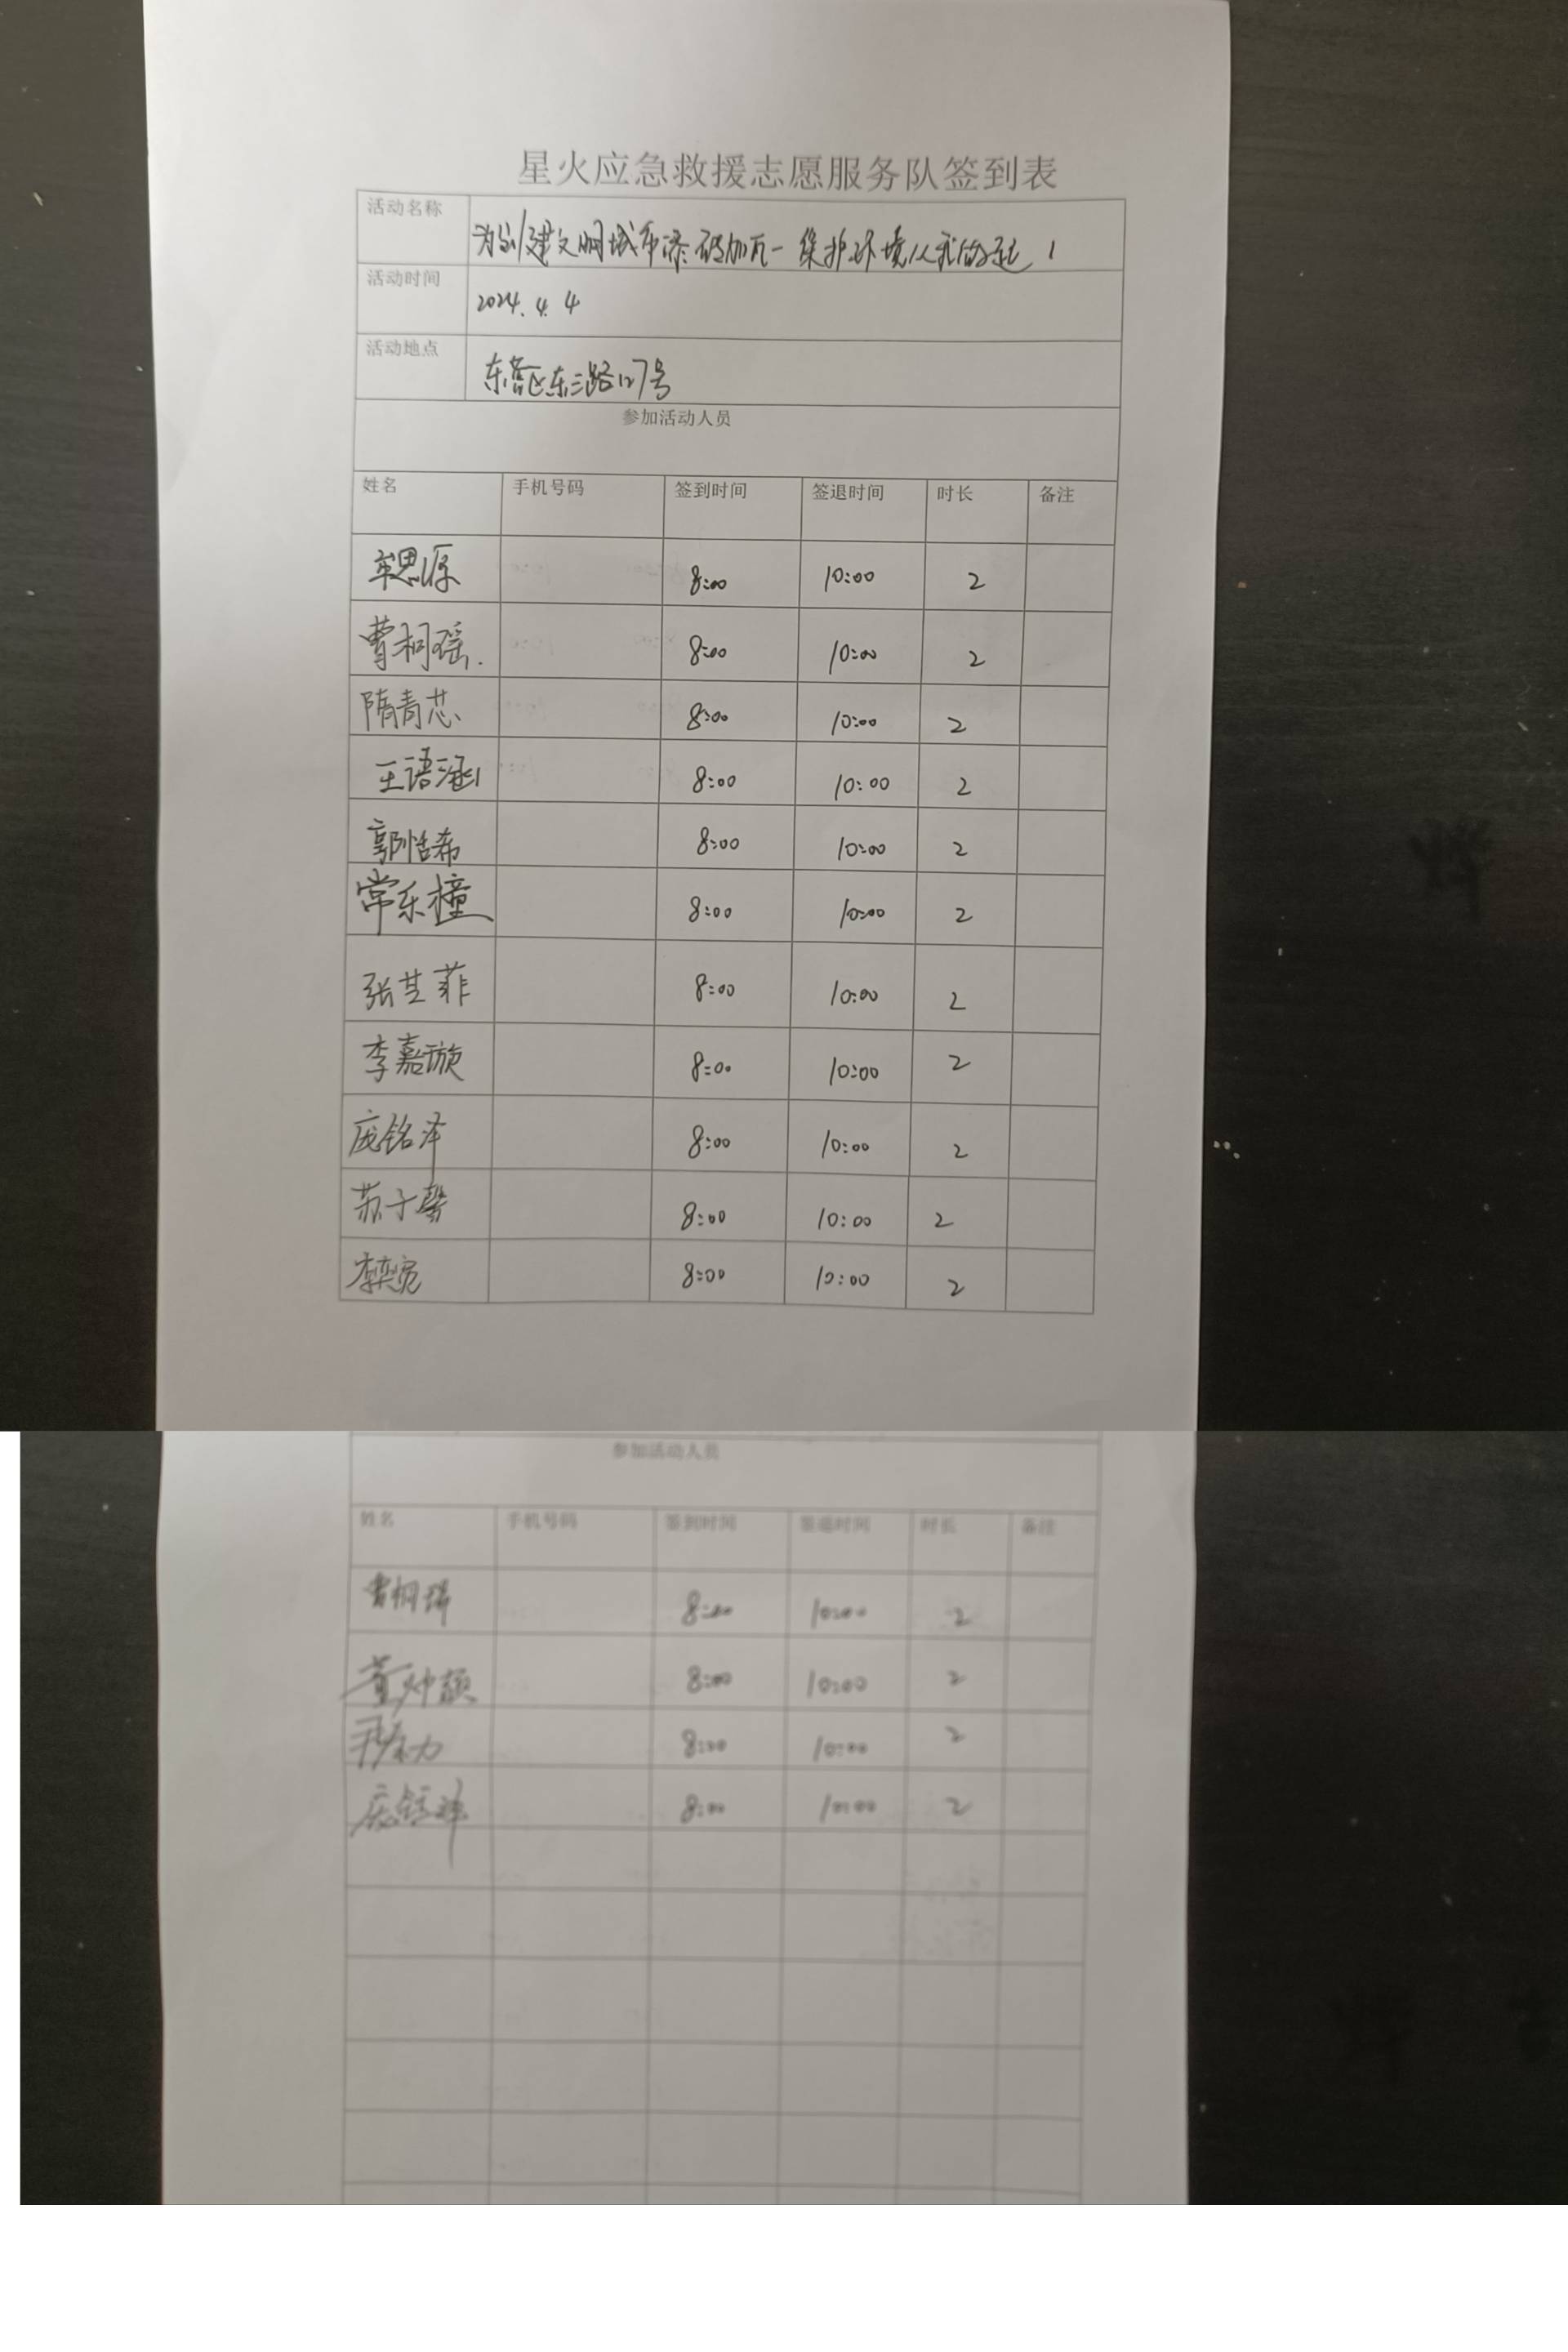 星火应急救援志愿服务队签到表
活动名称 为创建文明城市添砖加瓦一保护环境从我做起！
活动时间 2024.4.4
活动地点 东营区东三路127号
参加活动人员
姓名 手机号码 签到时间 签退时间 时长 备注
思源 8:00 10:00 2
曹桐瑶. 8:00 10:00 2
隋青芯 8:00 10:00 2
王语涵 8:00 10:00 2
郭恬希 8:00 10:00 2
常乐橦 8:00 10:00 2
张芝菲 8:00 10:00 2
李嘉璇 8:00 10:00 2
庞铭泽 8:00 10:00 2
苏子馨 8:00 10:00 2
李奕宽 8:00 10:00 2
参加活动人员
姓名 手机号码 签到时间 签退时间 时长 备注
曹桐瑞 8:00 10:00 2
董 8:00 10:00 2
8:00 10:00 2
8:00 10:00 2